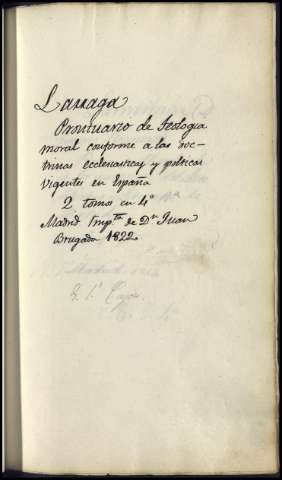 Larraga
Prontuario de Teologia
moral conforme a las doc-
trinas eclesiasticas y politicas
vigentes en España
2 tomos en 4°
Madrid Impta de Dn Juan
Brugada 1822.